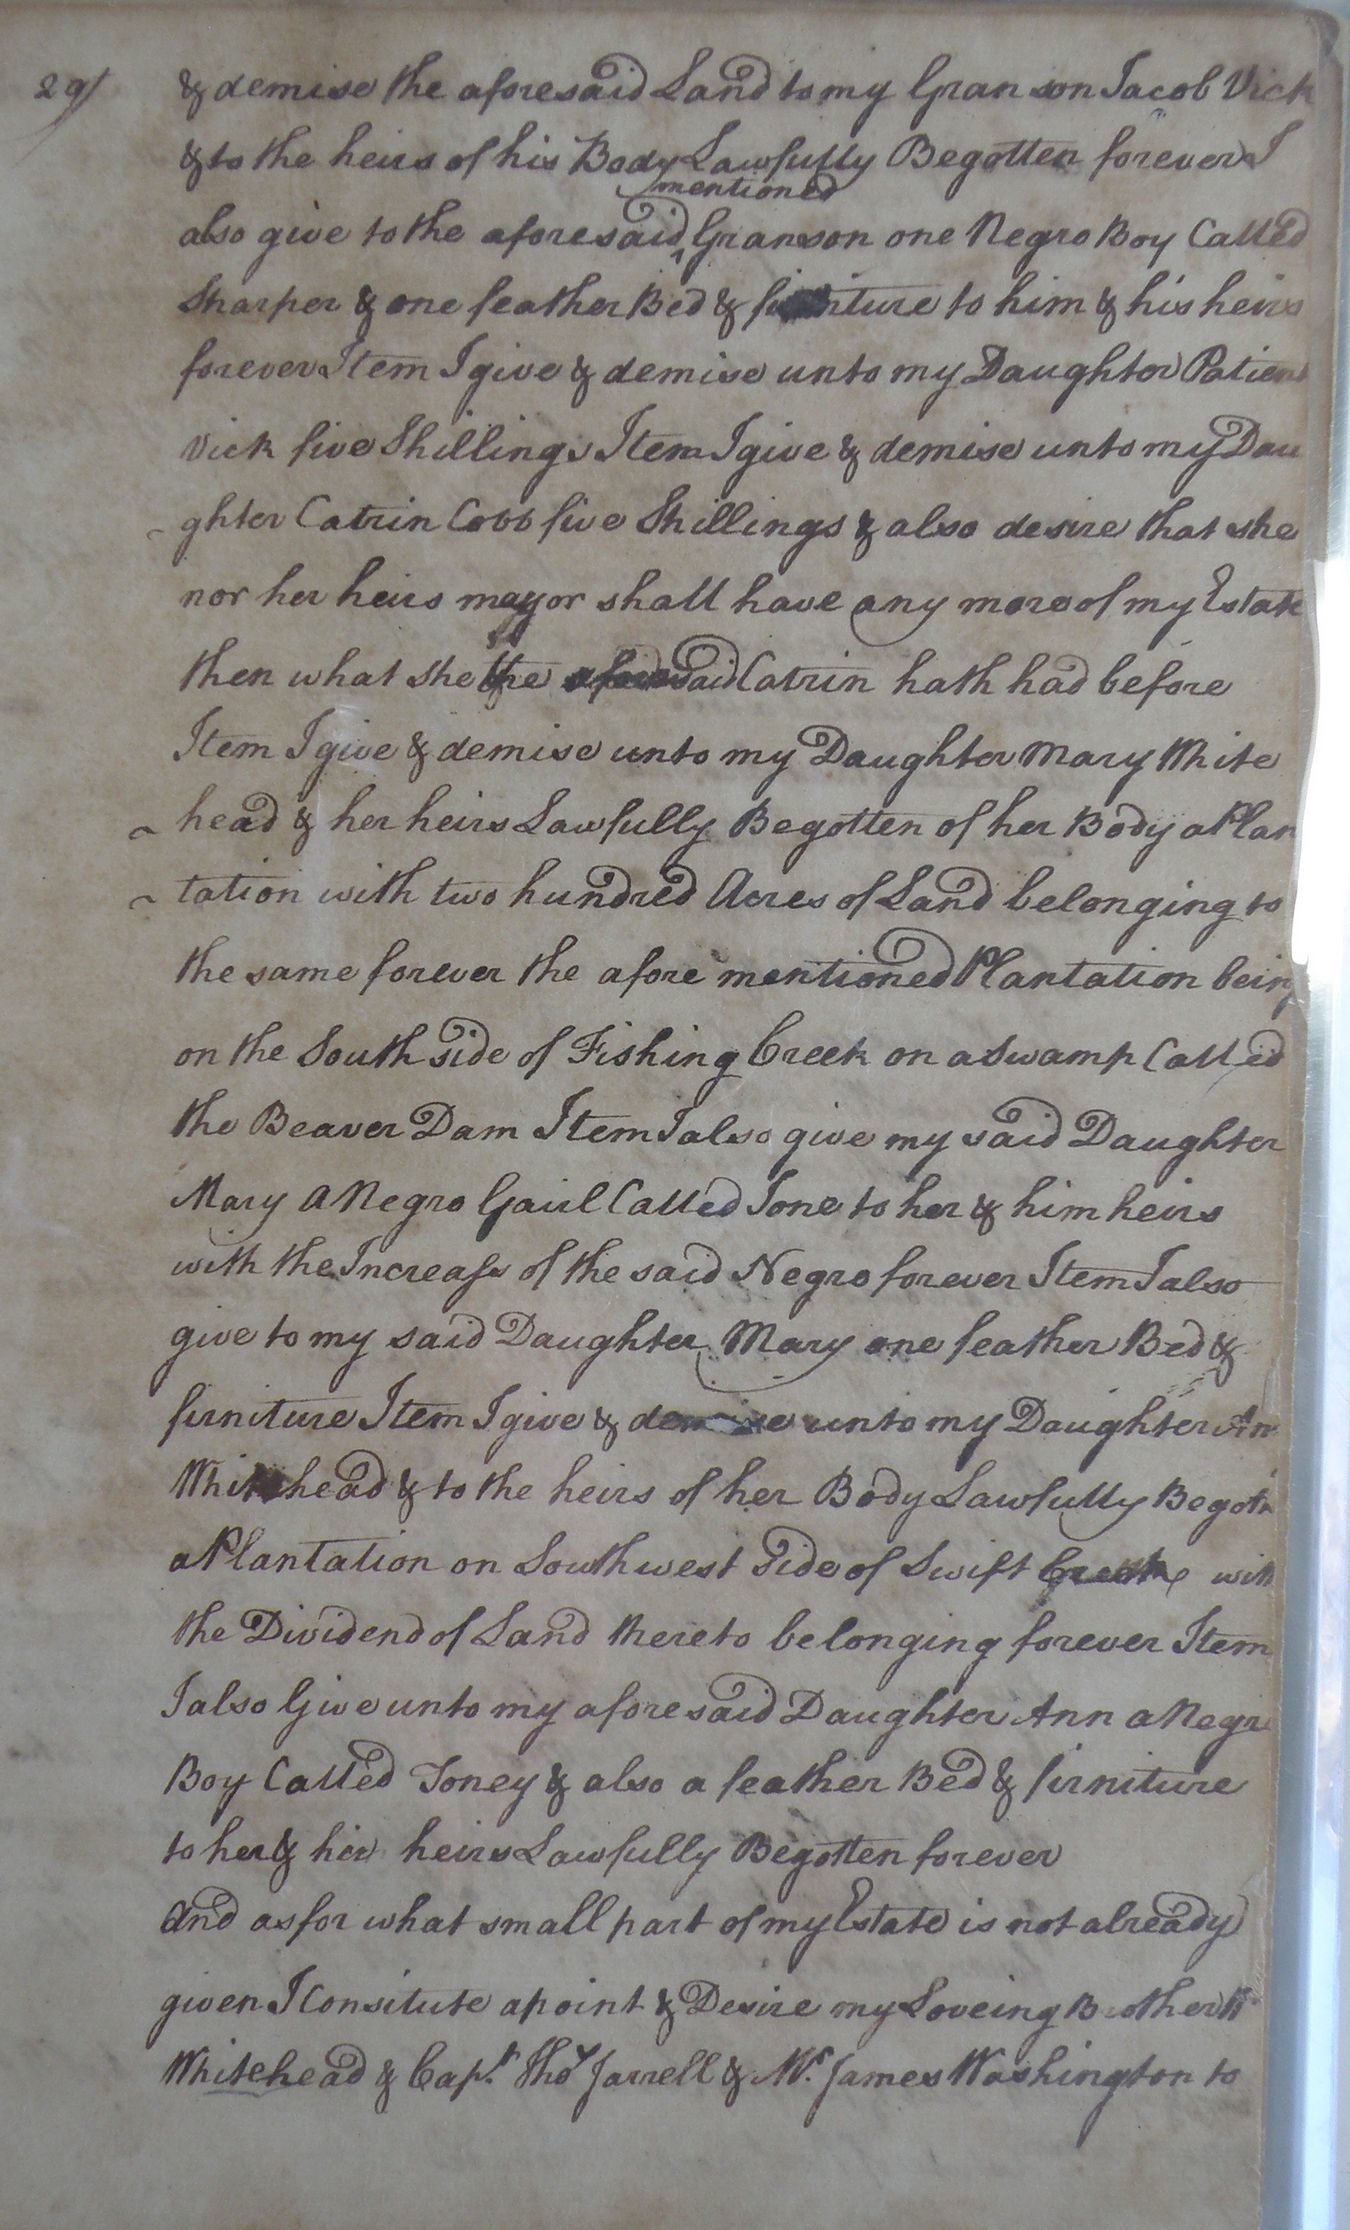 29
& demise the aforesaid Land to my Gran son Jacob Vick
& to the heirs of his Body Lawfully Begotten forever I
mentioned
also give to the aforesaid ^ Granson one Negro Boy Called
Sharper & one feather Bed & furniture to him & his heirs
forever Item I give & demise unto my Daughter Patient
Vick five Shillings Item I give & demise unto my Dau
~ ghter Catrin Cobb five Shillings & also desire that she
nor her heirs may or shall have any more of my Estate
then what she the aforesaid Catrin hath had before
Item I give & demise unto my Daughter Mary White
~ head & her heirs Lawfully Begotten of her Body a Plan
~ tation with two hundred Acres of Land belonging to
the same forever the afore mentioned Plantation being
on the South side of Fishing Creek on a Swamp Called
the Beaver Dam Item I also give my said Daughter
Mary a Negro Gairl Called Jone to her & him heirs
with the Increass of the said Negro forever Item I also
give to my said Daughter Mary one feather Bed &
firniture Item I give & demise unto my Daughter An
Whitehead & to the heirs of her Body Lawfully Begott
a Plantation on Southwest Side of Swift Creek with
the Dividend of Land thereto belonging forever Item
I also Give unto my aforesaid Daughter Ann a Negr
Boy Called Toney & also a feather Bed & firniture
to her & hir heirs Lawfully Begotten forever
And as for what small part of my Estate is not already
given I Consitute apoint & Desire my Loveing Brother
Whitehead & Capt. Thos Jarrell & Mr. James Washington to